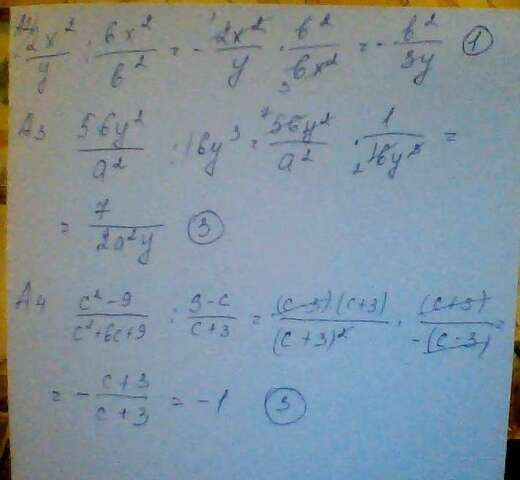 A2 -2x²/y : 6x²/b² = - 2x²/y · b²/6x² = - b²/3y ①
A3 56y²/a² : 16y³ = 56y²/a² · 1/16y³ =
= 7/2a²y ③
A4 c²-9/c²+6c+9 : 3-c/c+3 = (c-3)(c+3)/(c+3)² · (c+3)/-(c-3) =
= - c+3/c+3 = -1 ③